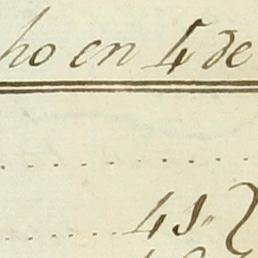 ho en 4 de
45.